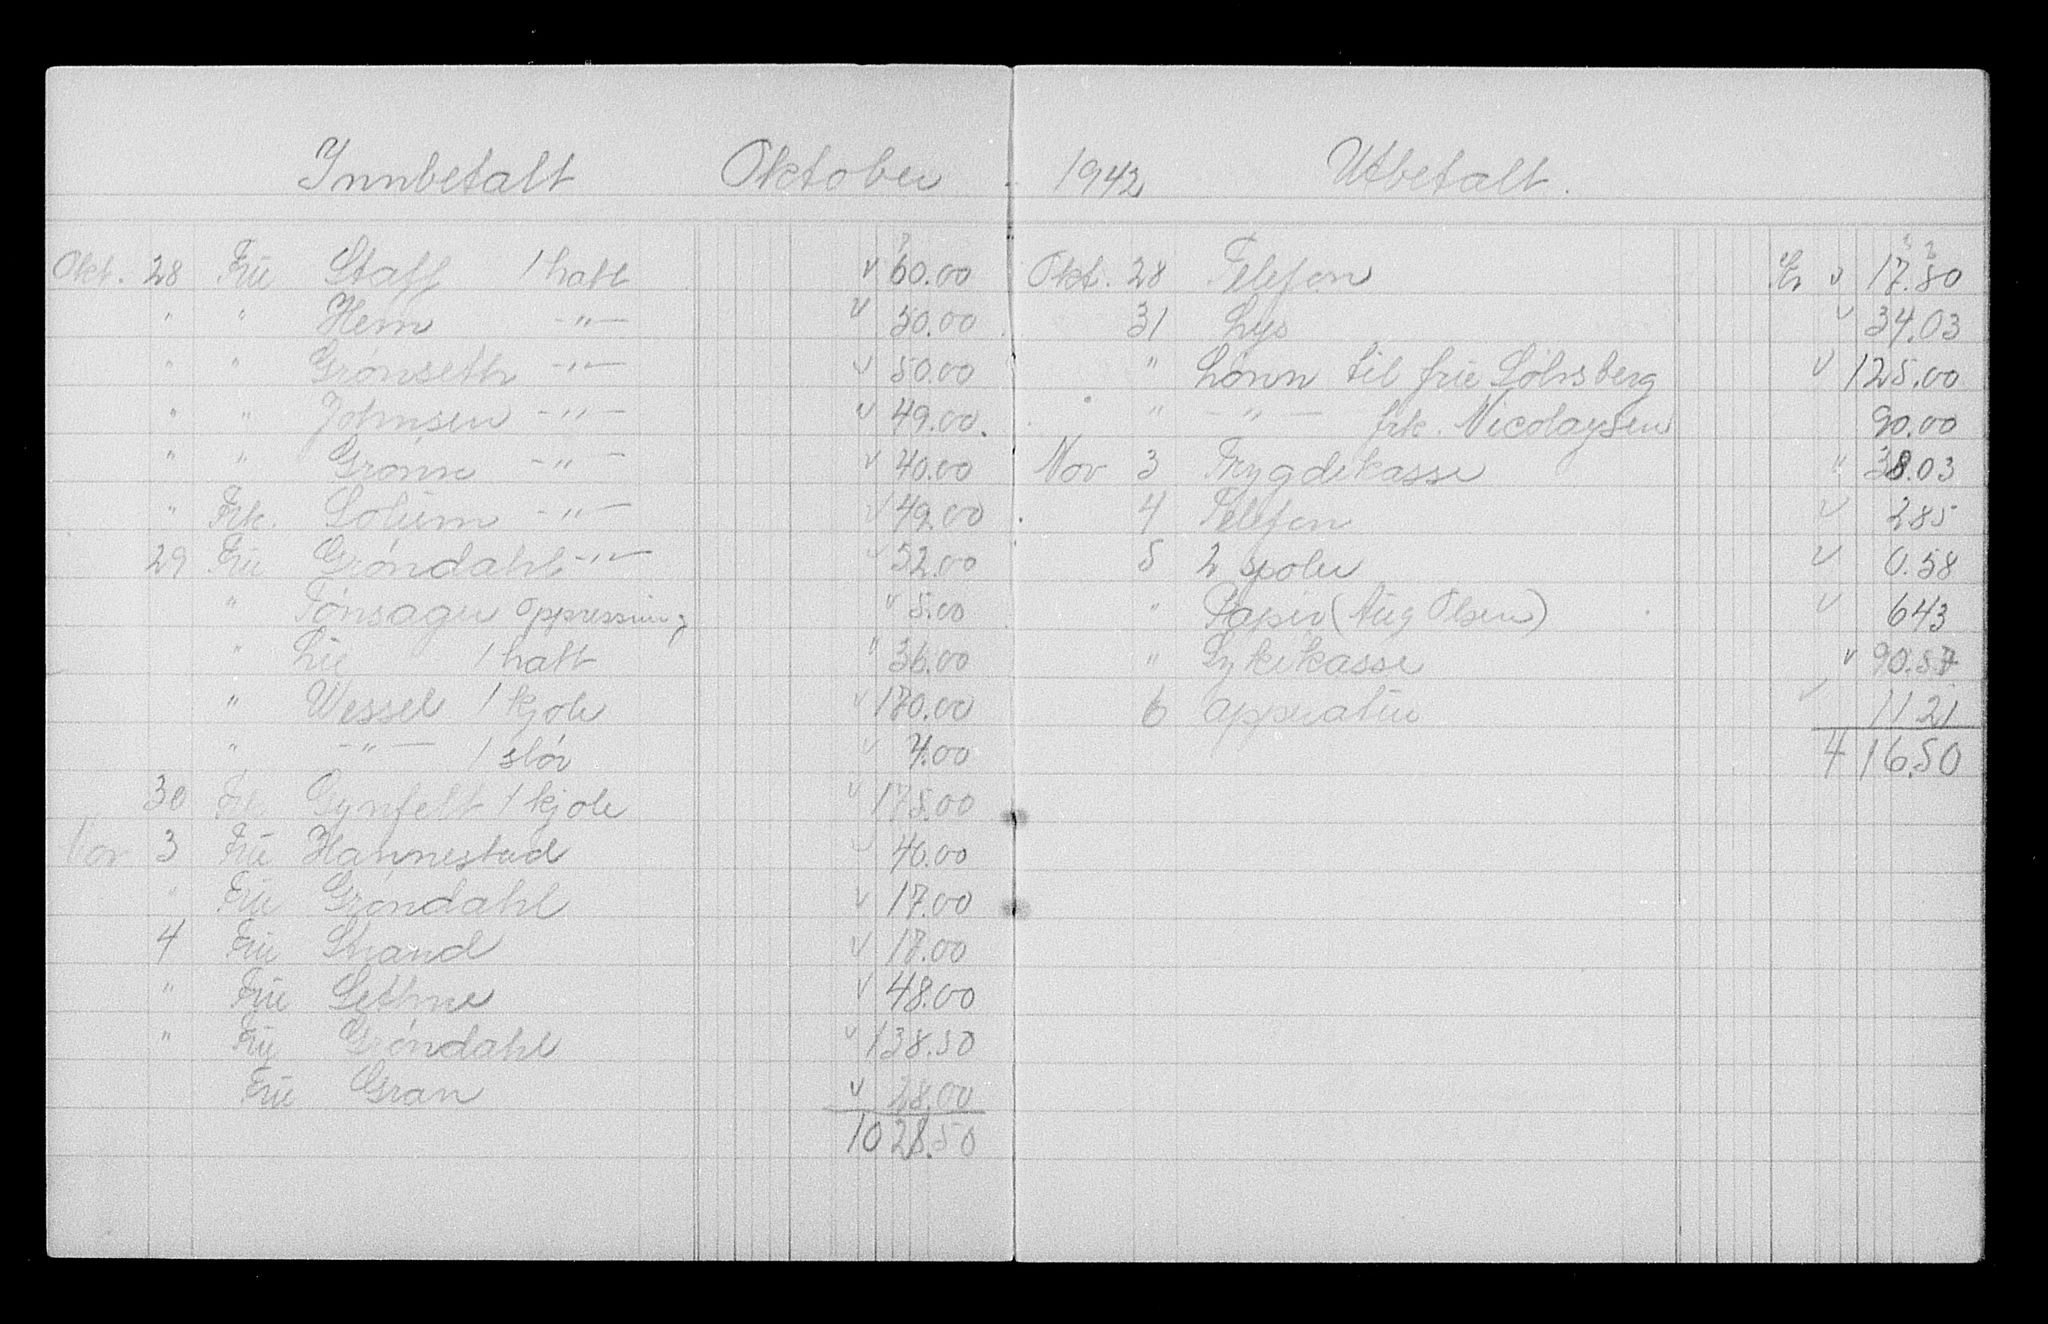 Innbetalt Oktober
Okt. 28 Frue Staff 1 hatt v 60.00
" " Hem -"- v 50.00
" " Grønseth -"- v 50.00
" " Johnsen -"- v 49.00
" " Grønn -"- v 40.00
" Frk. Solum -"- v 49.00
29 Frue Grøndahl -"- v 52.00
" Tønsager oppressing v 5.00
" Lie 1 hatt " 36.00
" Wessel 1 kjole v 170.00
" -"- 1 slør v 4.00
30 Gynfelt 1 kjole v 175.00
Nov 3 Frue Hannestad v 40.00
" Frue Grøndahl v 17.00
4 Frue Strand v 17.00
" Frue Sethne v 48.00
" Frue Grøndahl v 138.50
Frue Gran v 28.00
1028.50
1942 Utbetalt.
Okt. 28 Telefon Kr v 17.80
31 Lys v 34.03
" Lønn til frue Solvsberg v 125.00
" -"- frk. Nicolaysen 90.00
Nov 3 Trygdekasse " 38.03
4 Telefon v 285
5 2 spoler v 0.58
" Papir (Aug Olsen) v 643
" Sykekasse v 90.57
6 apperatur v 11 21
416.50